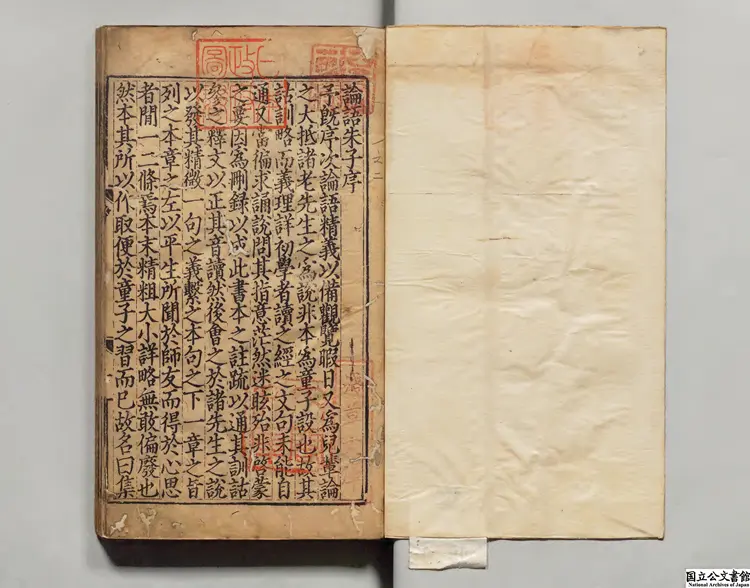 論語朱子序
予既序次論語精義以備觀覽暇日又爲兒輩論
之大抵諸老先生之爲說非本爲童子設也故其
詁訓略而義理詳初學者讀之經之文句未能自
通又當徧求誦說問其指意茫然迷眩殆非啓蒙
之要因爲刪錄以成此書本之註疏以通其訓詁
叅之釋文以正其音讀然後會之於諸先生之說
以發其精微一句之義繫之本句之下一章之旨
列之本章之左以平生所聞於師友而得於心思
者間一二條焉本末精粗大小詳略無敢偏廢也
然本其所以作取便於童子之習而已故名曰集
国立公文書館
National Archives of Japan